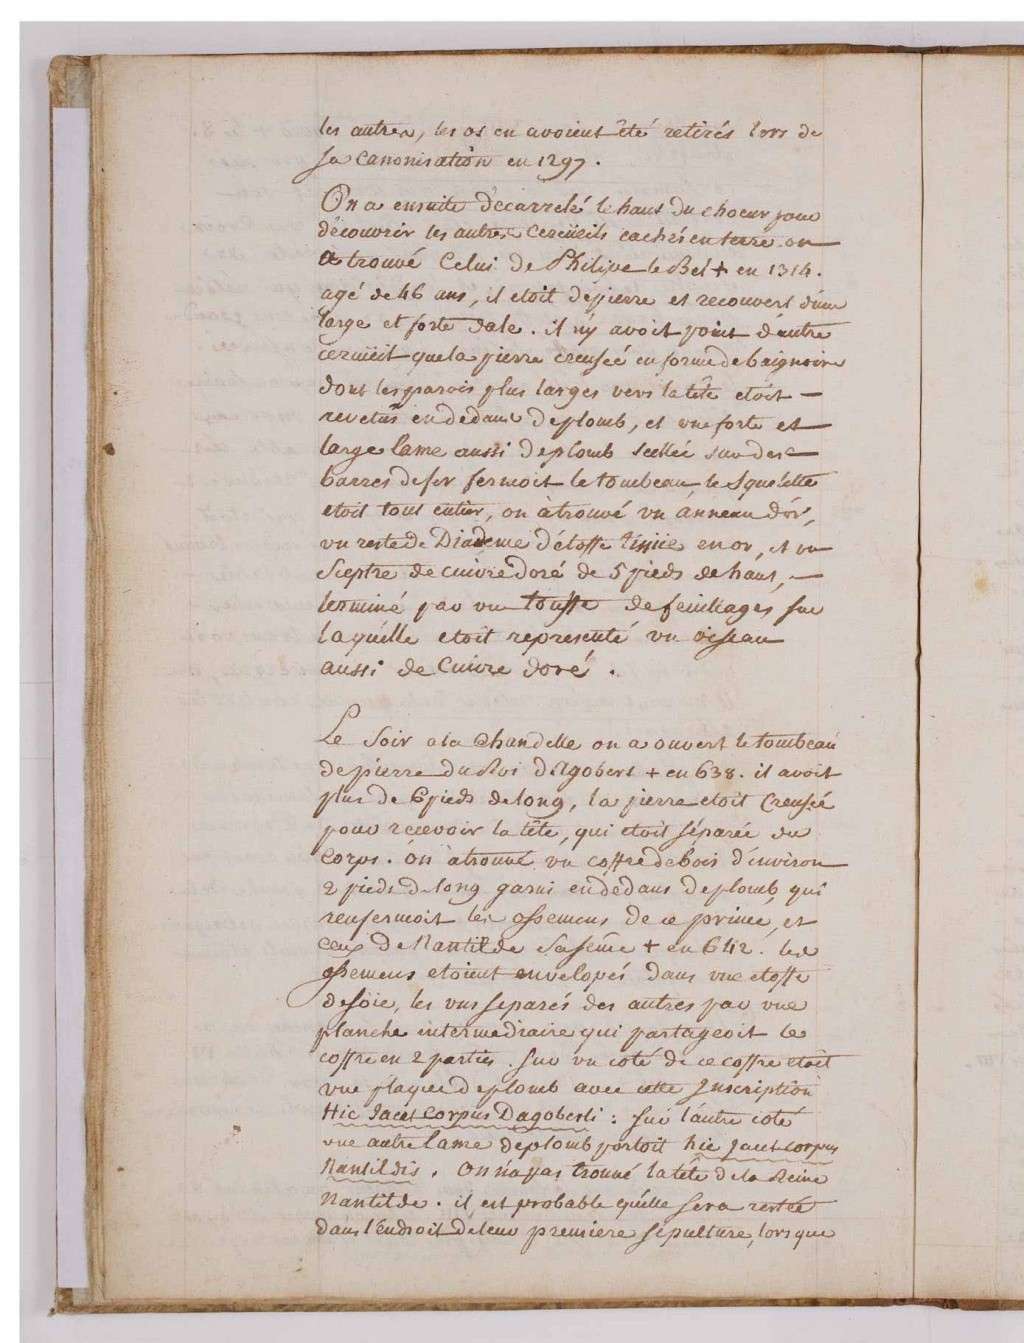 les autres, les os en avoient été retirés lors de
sa canonisation en 1297.
On a ensuite décarrelé le haut du choeur pour
découvrir les autres cercüeils cachés en terre. on
a trouvé Celui de Philipe le Bel + en 1314.
agé de 46 ans, il etoit de pierre et recouvert d'une
large et forte dale. il n'y avoit point d'autre
cercüeil que la pierre creusée en forme de baignoire
dont les parois plus larges vers la tête etoit —
revetüs en dedans de plomb, et une forte et
large lame aussi de plomb scellée sur des
barres de fer fermoit le tombeau, le squelette
etoit tout entier, on à trouvé un anneau d'or,
un reste de Diademe d'étoffe tissüe en or, et un
Sceptre de cuivre doré de 5 pieds de haut, —
terminé par un touffe de feuillages sur
laquelle etoit representé un oiseau
aussi de Cuivre doré.
Le Soir a la Chandelle on a ouvert le tombeau
de pierre du Roi Dagobert + en 638. il avoit
plus de 6 pieds de long, la pierre etoit Creusée
pour recevoir la tête, qui etoit séparée du
Corps. On à trouvé un coffre de bois d'environ
2 pieds de long garni en dedans de plomb, qui
renfermoit les ossemens de ce prince, et
ceux de Nantilde sa feme + en 642. les
ossemens etoient envelopés dans une etoffe
de soie, les uns separés des autres par une
planche intermediaire qui partageoit le
coffre en 2 parties. sur un coté de ce coffre etoit
une plaque de plomb avec cette Inscription
Hic Jacet Corpus Dagoberti: sur l'autre coté
une autre lame de plomb portoit hic Jacet corpus
Nantildis. On n'a pas trouvé la tête de la Reine
Nantilde. il est probable qu'elle sera restée
dans l'Endroit de leur premiere sépulture, lorsque